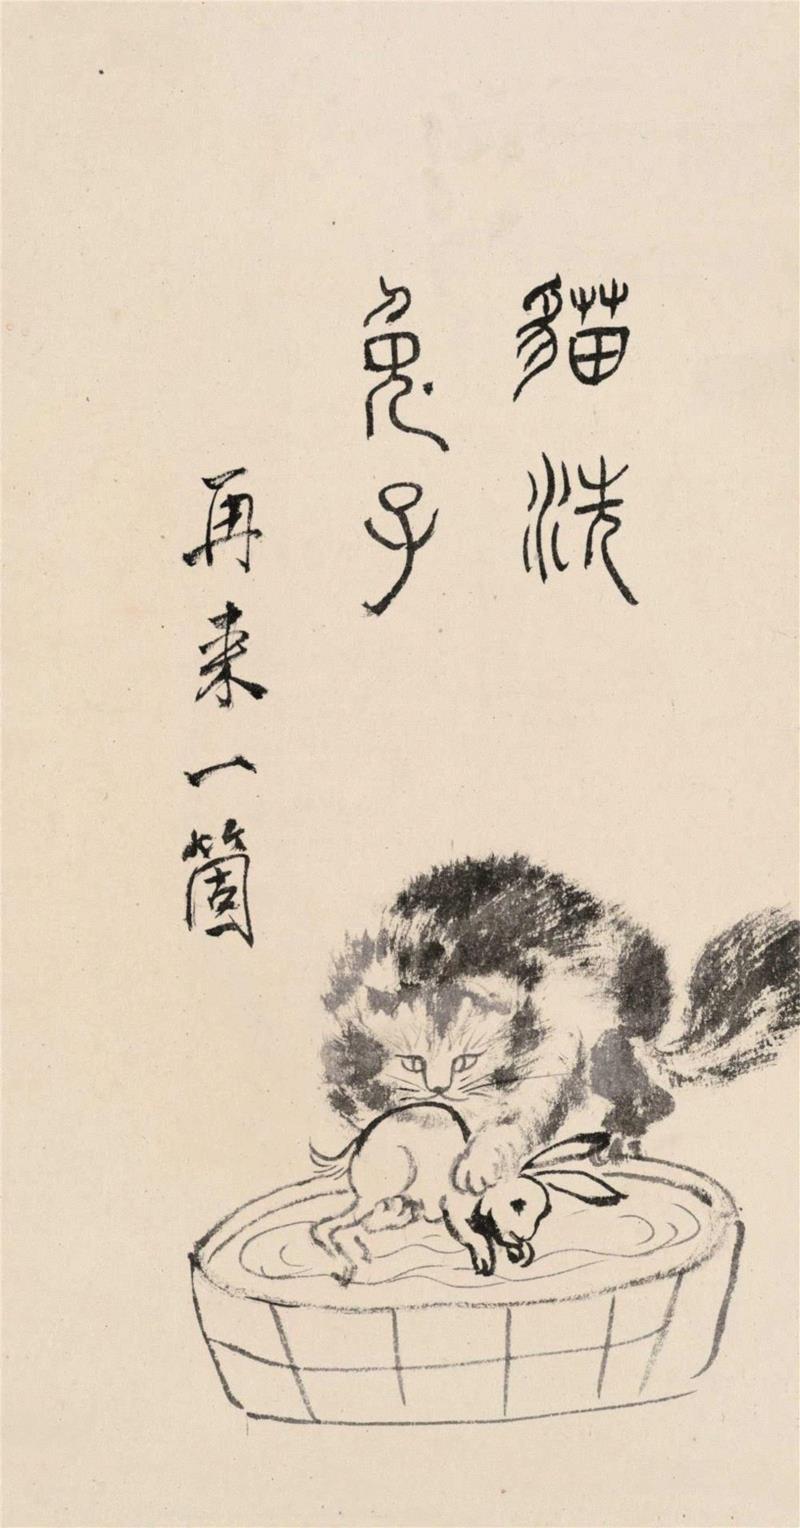 貓洗
兔子
再来一箇